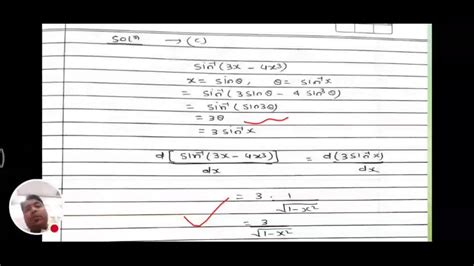 Solⁿ → (c)
sin⁻¹(3x – 4x³)
x = sinθ, θ = sin⁻¹x
= sin⁻¹(3sinθ – 4sin³θ)
= sin⁻¹(sin3θ)
= 3θ
= 3 sin⁻¹x
d[sin⁻¹(3x – 4x³)]/dx = d(3sin⁻¹x)/dx
= 3 · 1/√(1–x²)
= 3/√(1–x²)